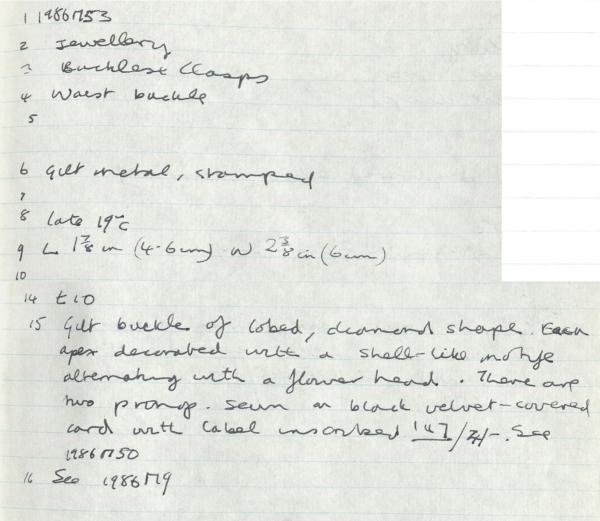 1 1986M53
2 Jewellery
3 Buckles & Clasps
4 Waist buckle
5
6 Gilt metal, stamped
7
8 late 19th C
9 L 1 7/8 in (4.6cm) W 2 3/8 in (6cm)
10
14 £10
15 Gilt buckle of lobed, diamond shape. Each
apex decorated with a shell-like motif
alternating with a flower head. There are
two prongs. Sewn on black velvet-covered
card with label inscribed See
1986M50
16 See 1986M9